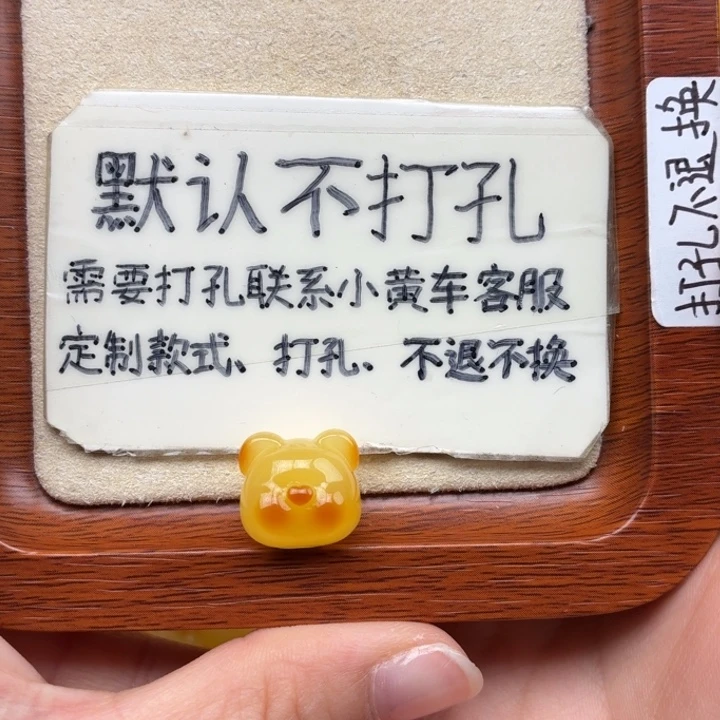 默认不打孔
需要打孔联系小黄车客服
定制款式、打孔、不退不换
打孔不退换